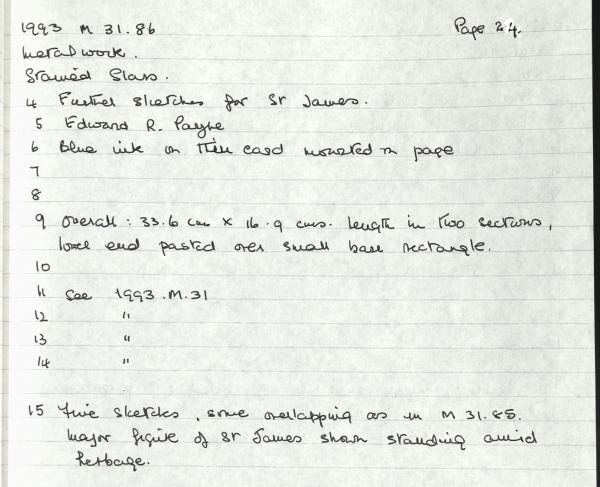 1993 M 31.86 Page 24.
Metalwork.
Stained Glass.
4 Further sketches for St James.
5 Edward R. Payne
6 Blue ink on thin card mounted on page
7
8
9 Overall : 33.6 cm x 16.9 cms. Length in two sections,
lower end pasted over small base rectangle.
10
11 See 1993.M.31
12 "
13 "
14 "
15 Five sketches, some overlapping as in M 31.85.
Major figure of St James shown standing amid
herbage.